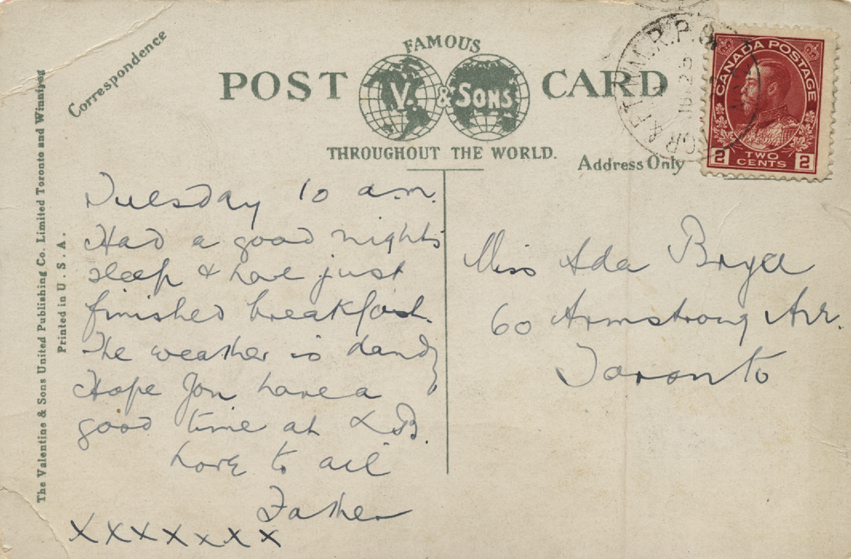 Correspondence
FAMOUS
POST CARD
V. & SONS
THROUGHOUT THE WORLD.
Address Only
CANADA POSTAGE
2 TWO CENTS 2
R.P.O.
The Valentine & Sons United Publishing Co. Limited Toronto and Winnipeg
Printed in U.S.A.
Tuesday 10 a.m.
Had a good nights
sleep & have just
finished breakfast.
The weather is dandy
Hope you have a
good time at L.B.
Love to all
Father
XXXXXXX
Miss Ada
60 Armstrong Ave.
Toronto